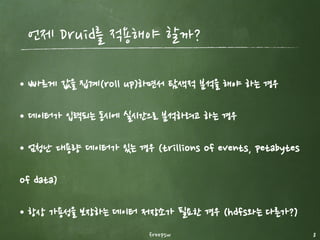 언제 Druid를 적용해야 할까?
• 빠르게 값을 집계(roll up)하면서 탐색적 분석을 해야 하는 경우
• 데이터가 입력되는 동시에 실시간으로 분석하려고 하는 경우
• 엄청난 대용량 데이터가 있는 경우 (trillions of events, petabytes
of data)
• 항상 가용성을 보장하는 데이터 저장소가 필요한 경우 (hdfs와는 다른가?)
freepsw
8